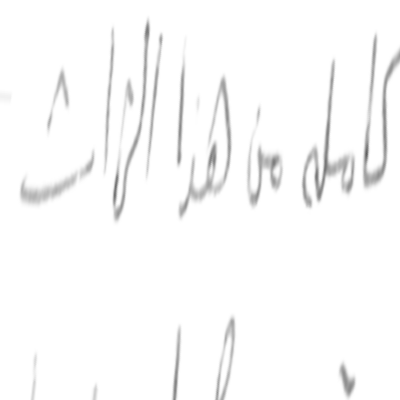 كاملة من هذا التراث